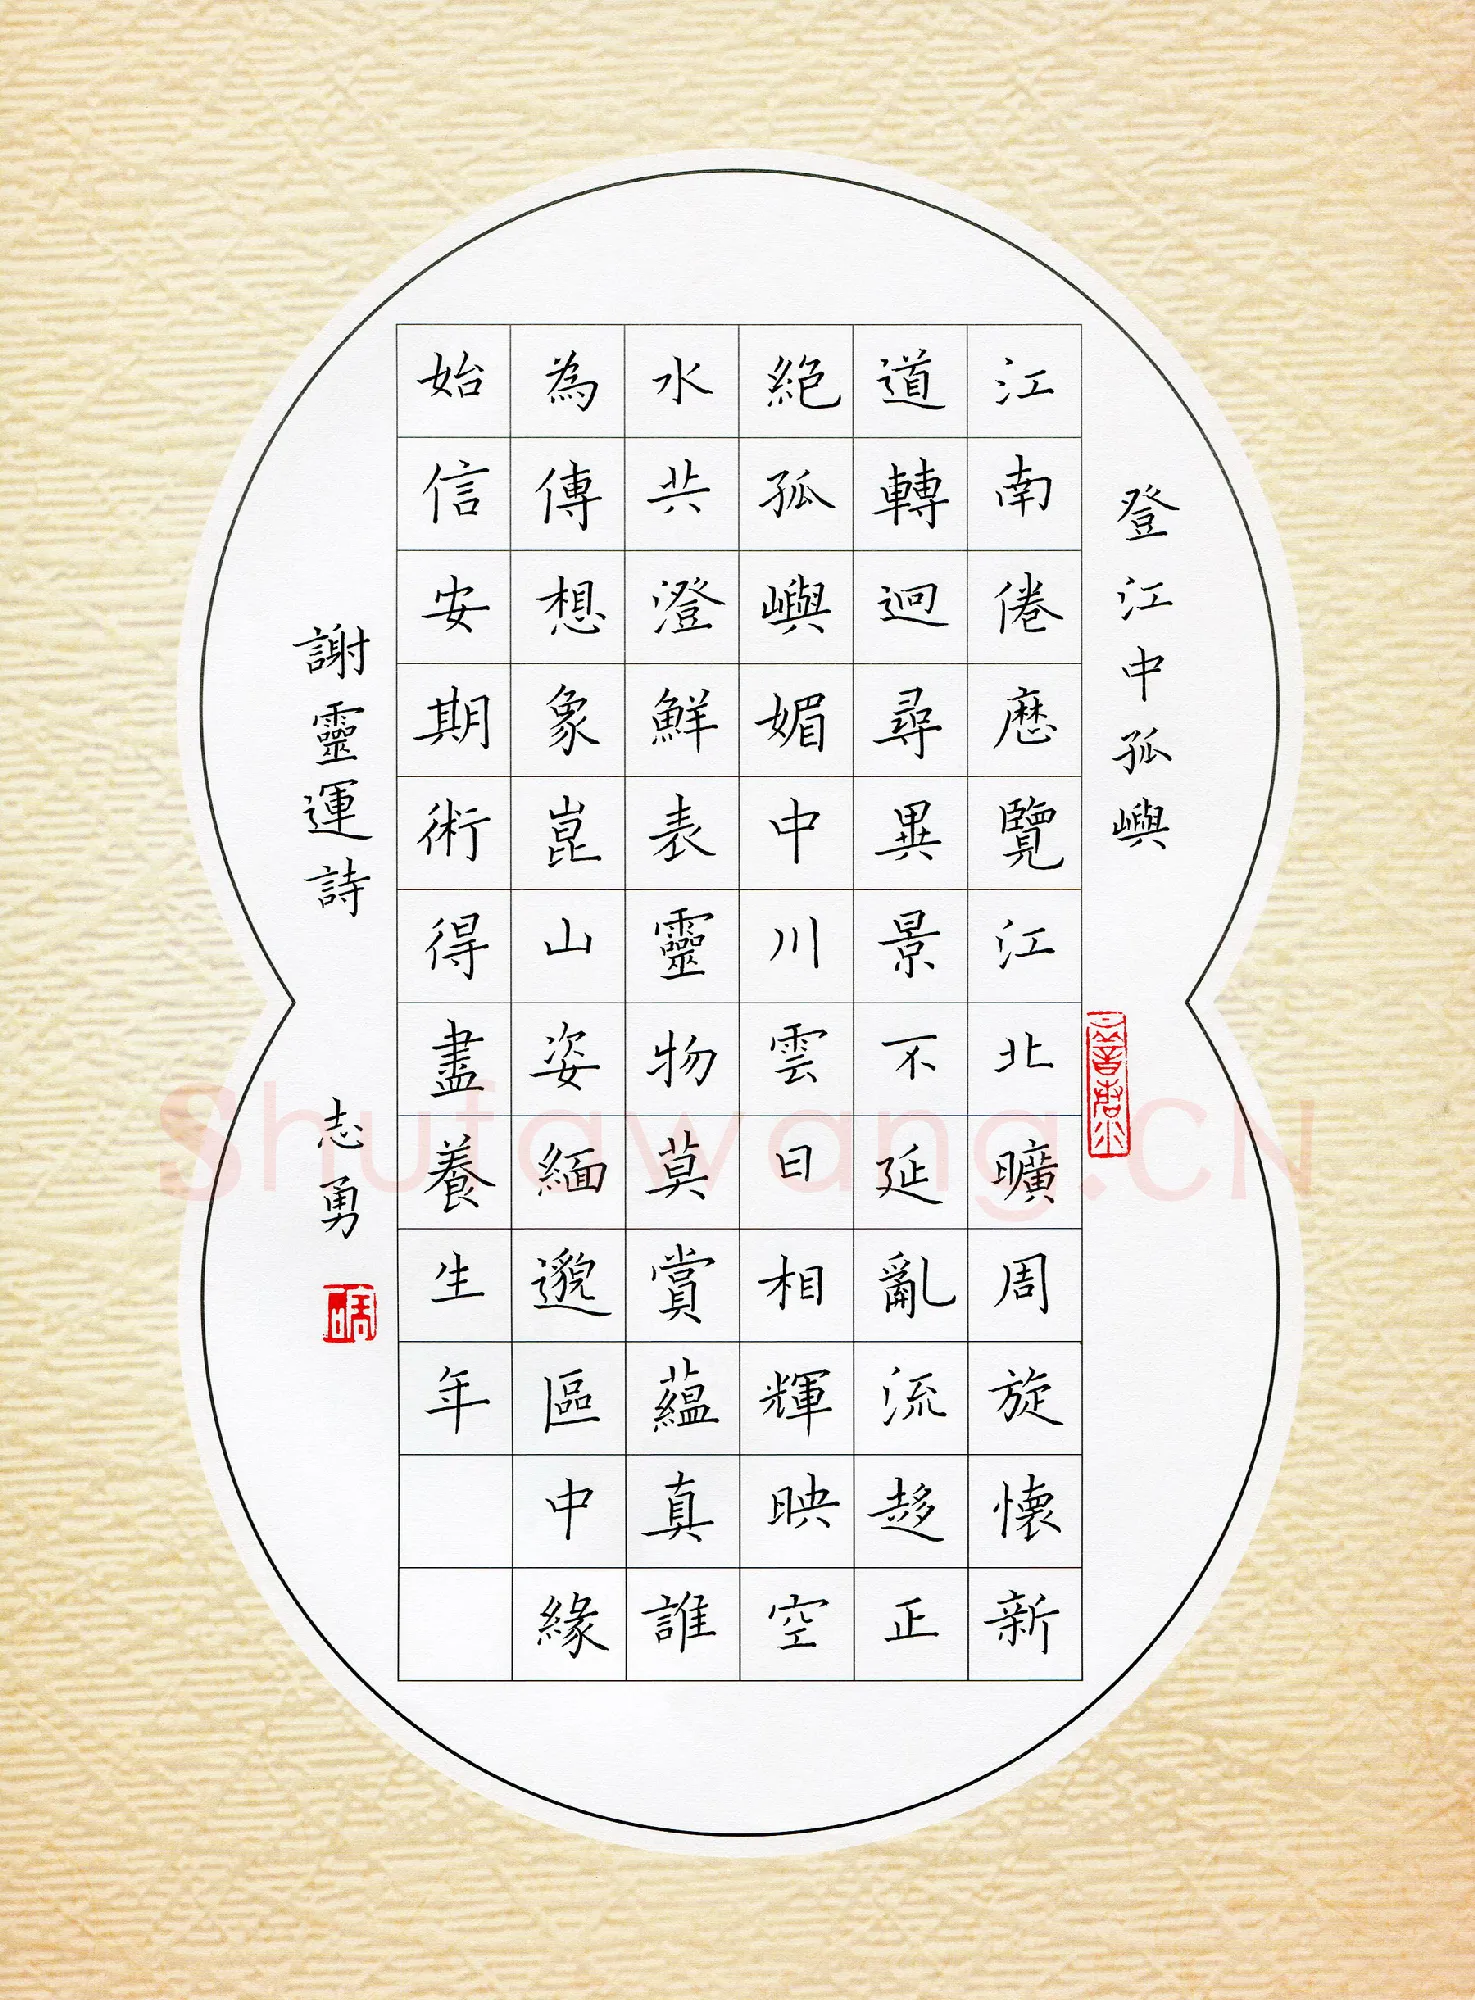 登江中孤嶼
江南倦歷覽江北曠周旋懷新
道轉迴尋異景不延亂流趍正
絕孤嶼媚中川雲日相輝映空
水共澄鮮表靈物莫賞蘊真誰
為傳想象崑山姿緬邈區中緣
始信安期術得盡養生年
謝靈運詩
志勇
Shufawang.CN